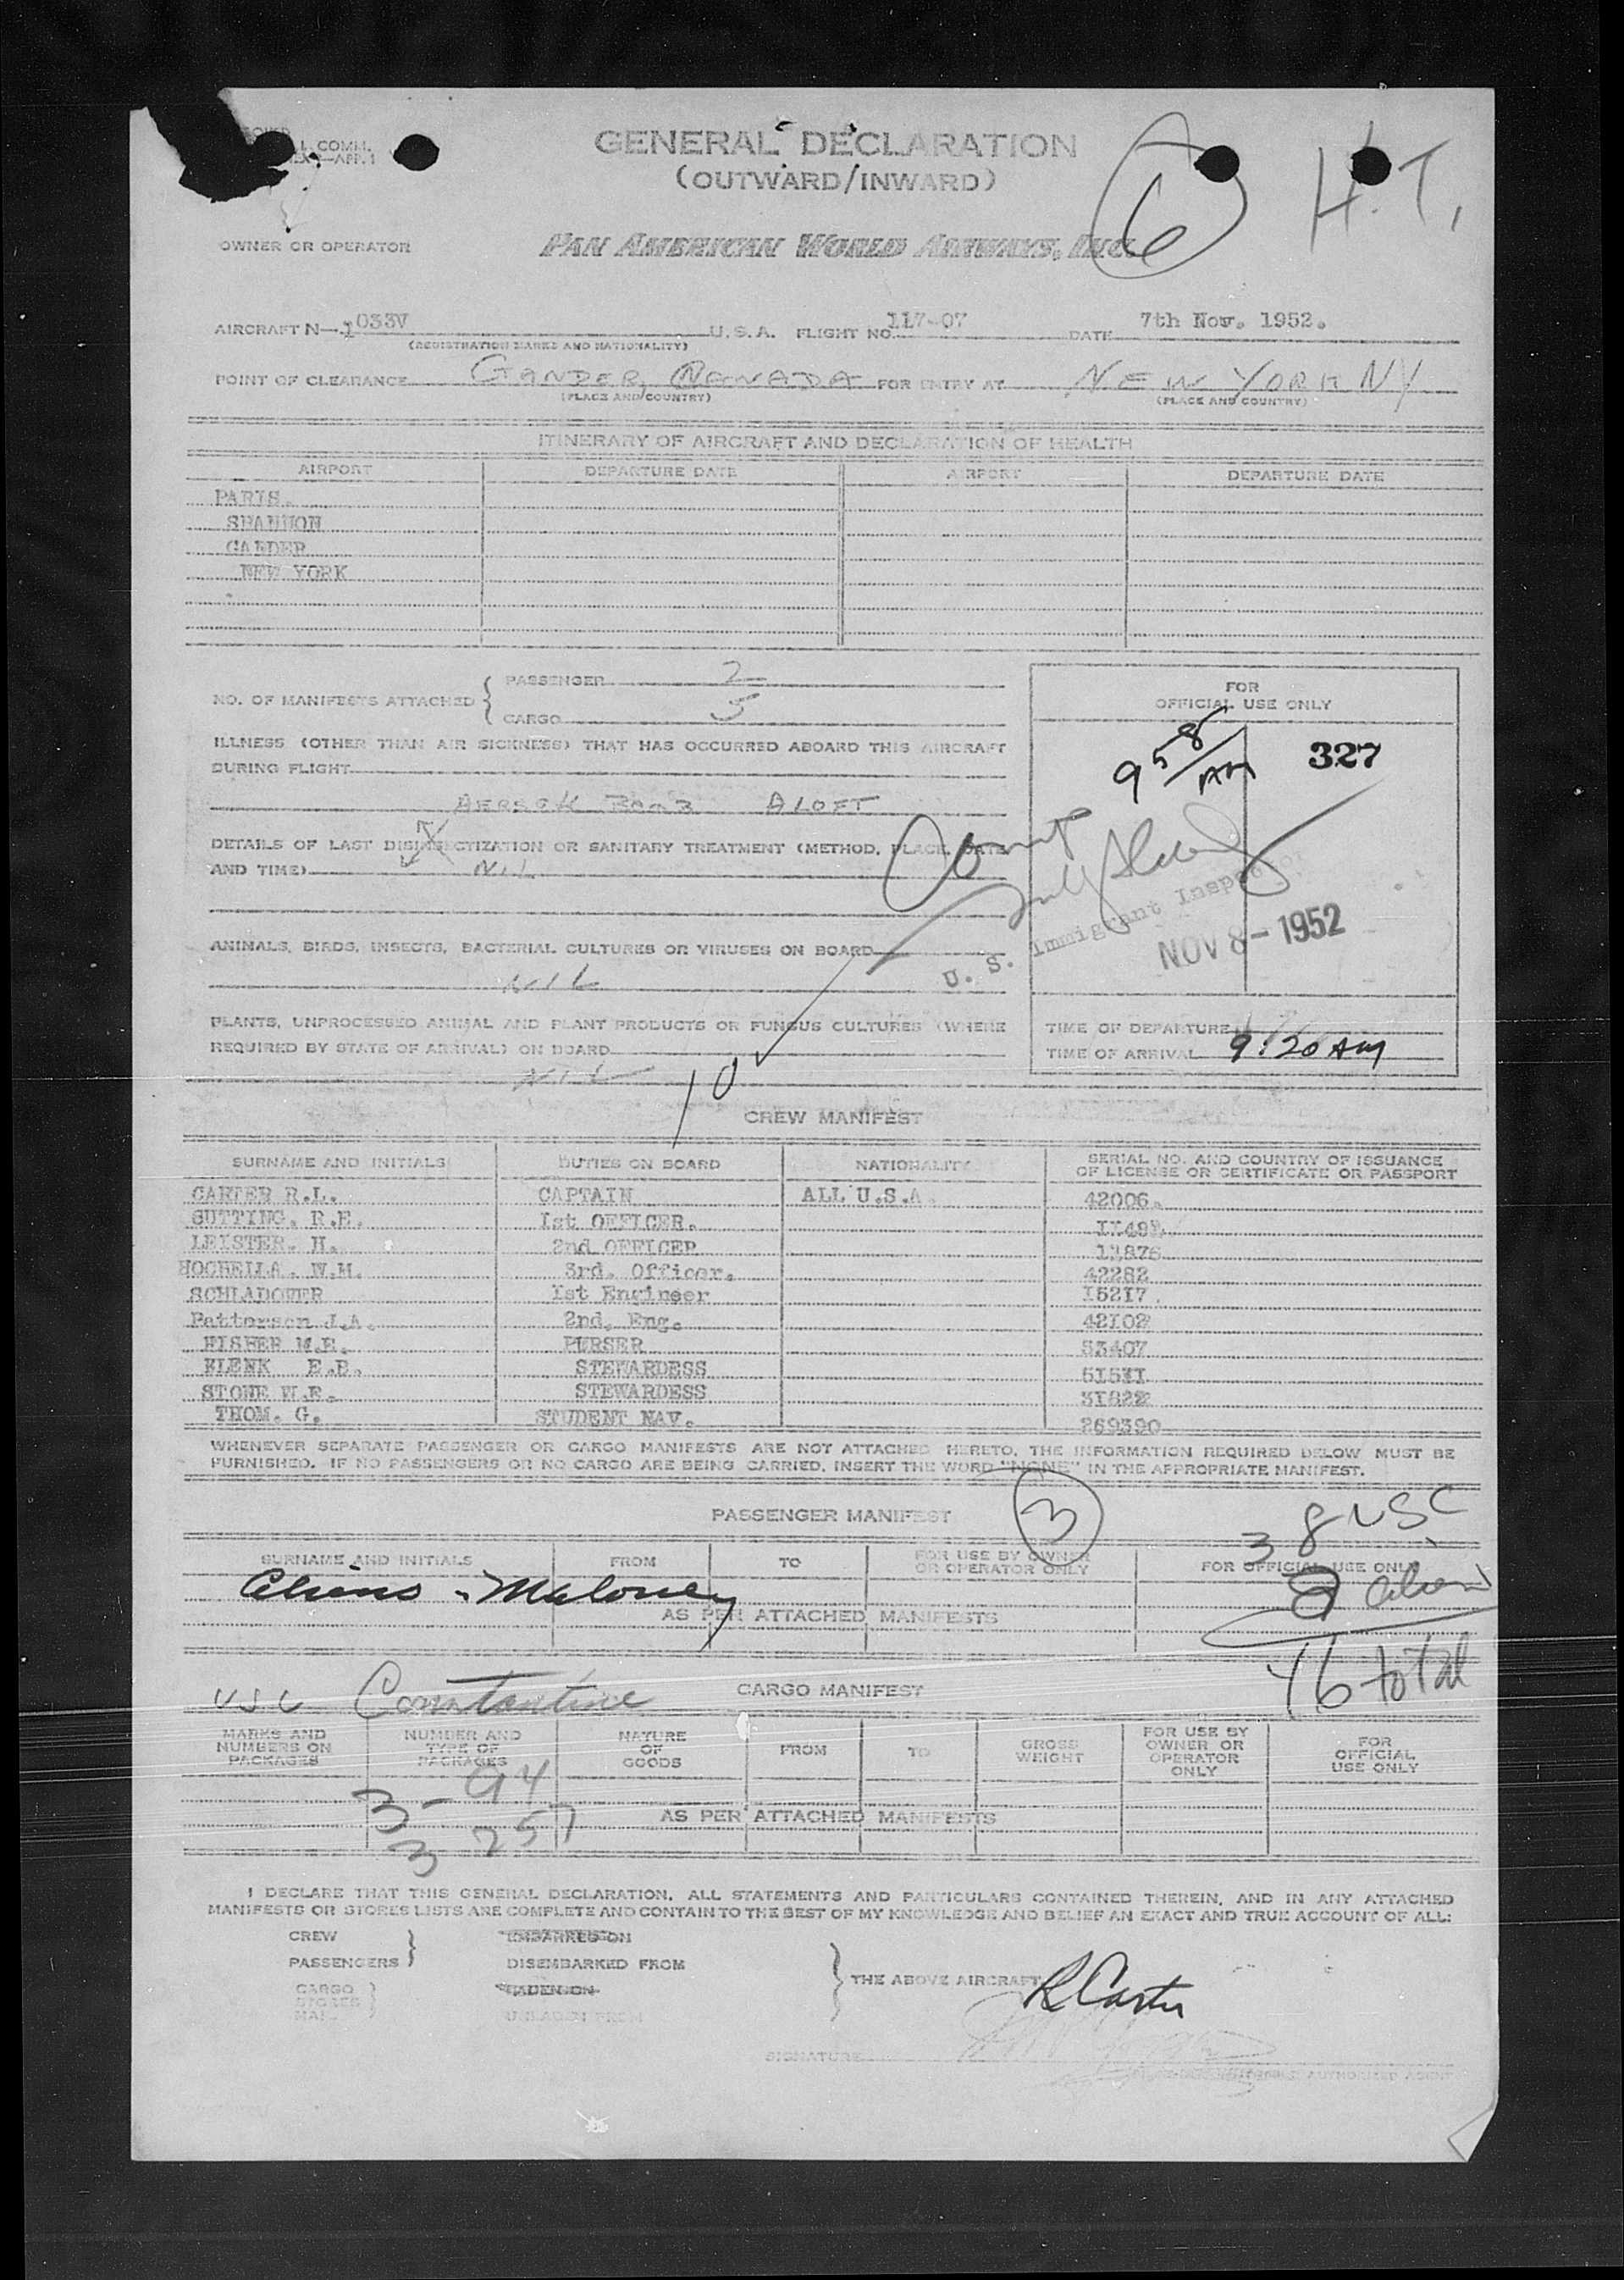 GENERAL DECLARATION
(OUTWARD/INWARD)
6 H.T.
OWNER OR OPERATOR PAN AMERICAN WORLD AIRWAYS, INC.
AIRCRAFT N—1033V U.S.A. FLIGHT NO. 117-07 DATE 7th Nov. 1952.
(REGISTRATION MARKS AND NATIONALITY)
POINT OF CLEARANCE GANDER, CANADA FOR ENTRY AT NEW YORK NY
(PLACE AND COUNTRY) (PLACE AND COUNTRY)
ITINERARY OF AIRCRAFT AND DECLARATION OF HEALTH
AIRPORT DEPARTURE DATE AIRPORT DEPARTURE DATE
PARIS.
SHANNON
GANDER
NEW YORK
NO. OF MANIFESTS ATTACHED { PASSENGER 2
CARGO 5
ILLNESS (OTHER THAN AIR SICKNESS) THAT HAS OCCURRED ABOARD THIS AIRCRAFT
DURING FLIGHT
ALOFT
DETAILS OF LAST DISINSECTIZATION OR SANITARY TREATMENT (METHOD, PLACE, DATE
AND TIME) NIL
ANIMALS, BIRDS, INSECTS, BACTERIAL CULTURES OR VIRUSES ON BOARD
NIL
PLANTS, UNPROCESSED ANIMAL AND PLANT PRODUCTS OR FUNGUS CULTURES (WHERE
REQUIRED BY STATE OF ARRIVAL) ON BOARD
NIL
10
FOR
OFFICIAL USE ONLY
9 58 AM 327
U. S. Immigrant Inspector
NOV 8 - 1952
TIME OF DEPARTURE
TIME OF ARRIVAL 9:20 AM
CREW MANIFEST
SURNAME AND INITIALS DUTIES ON BOARD NATIONALITY SERIAL NO. AND COUNTRY OF ISSUANCE
OF LICENSE OR CERTIFICATE OR PASSPORT
CARTER R.L. CAPTAIN ALL U.S.A. 42006.
SUTTING. R.E. 1st OFFICER.
LEISTER. H. 2nd OFFICER 13876
HOCHELLA. W.M. 3rd. Officer. 42282
SCHLADOWER 1st Engineer 15217.
Patterson J.A. 2nd. Eng. 42102
FISHER M.E. PURSER 53407
KLENK E.B. STEWARDESS 51531
STONE W.E. STEWARDESS 31822
THOM. G. STUDENT NAV. 269390
WHENEVER SEPARATE PASSENGER OR CARGO MANIFESTS ARE NOT ATTACHED HERETO, THE INFORMATION REQUIRED BELOW MUST BE
FURNISHED. IF NO PASSENGERS OR NO CARGO ARE BEING CARRIED, INSERT THE WORD "NONE" IN THE APPROPRIATE MANIFEST.
PASSENGER MANIFEST 3 38 USC
SURNAME AND INITIALS FROM TO FOR USE BY OWNER
OR OPERATOR ONLY FOR OFFICIAL USE ONLY
Aliens - Maloney 8 alien
AS PER ATTACHED MANIFESTS
46 total
USC Constantine CARGO MANIFEST
MARKS AND
NUMBERS ON
PACKAGES NUMBER AND
TYPE OF
PACKAGES NATURE
OF
GOODS FROM TO GROSS
WEIGHT FOR USE BY
OWNER OR
OPERATOR
ONLY FOR
OFFICIAL
USE ONLY
3 - 94
3 257
AS PER ATTACHED MANIFESTS
I DECLARE THAT THIS GENERAL DECLARATION, ALL STATEMENTS AND PARTICULARS CONTAINED THEREIN, AND IN ANY ATTACHED
MANIFESTS OR STORES LISTS ARE COMPLETE AND CONTAIN TO THE BEST OF MY KNOWLEDGE AND BELIEF AN EXACT AND TRUE ACCOUNT OF ALL:
CREW EMBARKED ON
PASSENGERS DISEMBARKED FROM
THE ABOVE AIRCRAFT R Carter
CARGO LADEN ON
STORES
MAIL UNLADEN FROM
SIGNATURE
AUTHORIZED AGENT